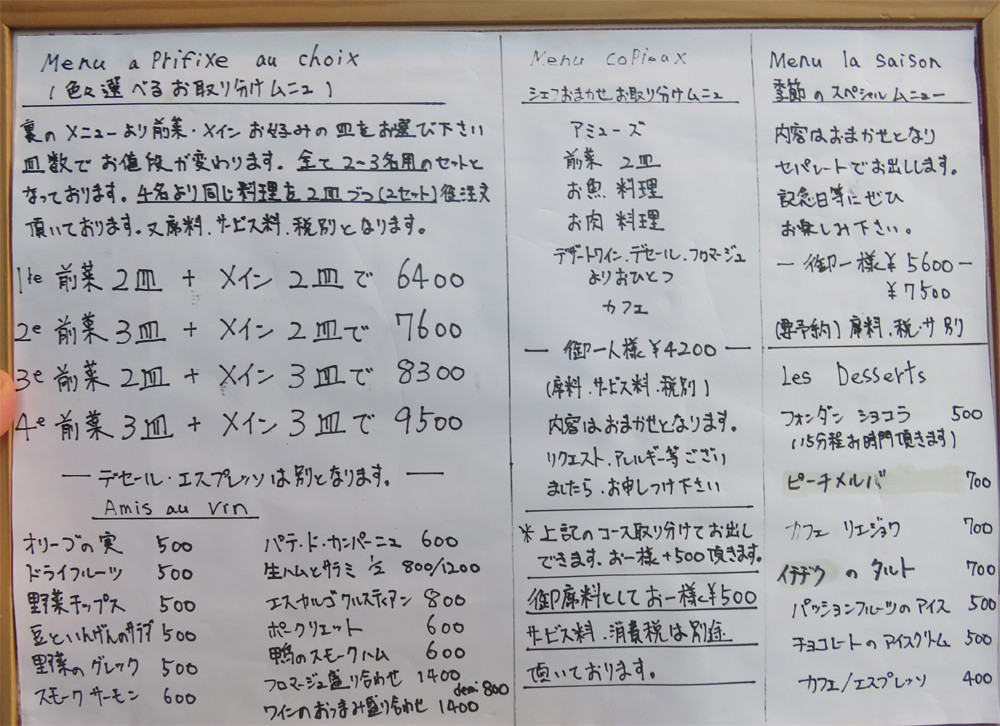 Menu a Prifixe au choix
(色々選べるお取り分けムニュ)
裏のメニューより前菜・メインお好みの皿をお選び下さい
皿数でお値段が変わります。全て2〜3名用のセットと
なっております。4名より同じ料理を2皿づつ(2セット)御注文
頂いております。又席料.サービス料.税別となります。
1re 前菜2皿 + メイン 2皿で 6400
2e 前菜3皿 + メイン 2皿で 7600
3e 前菜2皿 + メイン 3皿で 8300
4e 前菜3皿 + メイン 3皿で 9500
— デセール・エスプレッソは別となります。 —
Amis au vin
オリーブの実 500
ドライフルーツ 500
野菜チップス 500
豆といんげんのサラダ 500
野菜のグレック 500
スモークサーモン 600
パテ・ド・カンパーニュ 600
生ハムとサラミ 1/2 800/1200
エスカルゴクルスティアン 800
ポークリエット 600
鴨のスモークハム 600
フロマージュ盛り合わせ 1400
demi 800
ワインのおつまみ盛り合わせ 1400
Menu copieax
シェフおまかせお取り分けムニュ
アミューズ
前菜 2皿
お魚料理
お肉料理
デザートワイン.デセール.フロマージュ
よりおひとつ
カフェ
— 御一人様¥4200 —
(席料.サービス料.税別)
内容はおまかせとなります。
リクエスト.アレルギー等ござい
ましたら、お申しつけ下さい
※上記のコース取り分けてお出し
できます。お一様+500頂きます。
御席料としてお一様¥500
サービス料.消費税は別途
頂いております。
Menu la saison
季節のスペシャルムニュー
内容はおまかせとなり
セパレートでお出しします。
記念日等にぜひ
お楽しみ下さい。
— 御一様¥5600 —
¥7500
(要予約)席料.税.サ別
Les Desserts
フォンダンショコラ 500
(15分程お時間頂きます)
ピーチメルバ 700
カフェリエジョワ 700
イチヂクのタルト 700
パッションフルーツのアイス 500
チョコレートのアイスクリム 500
カフェ/エスプレッソ 400